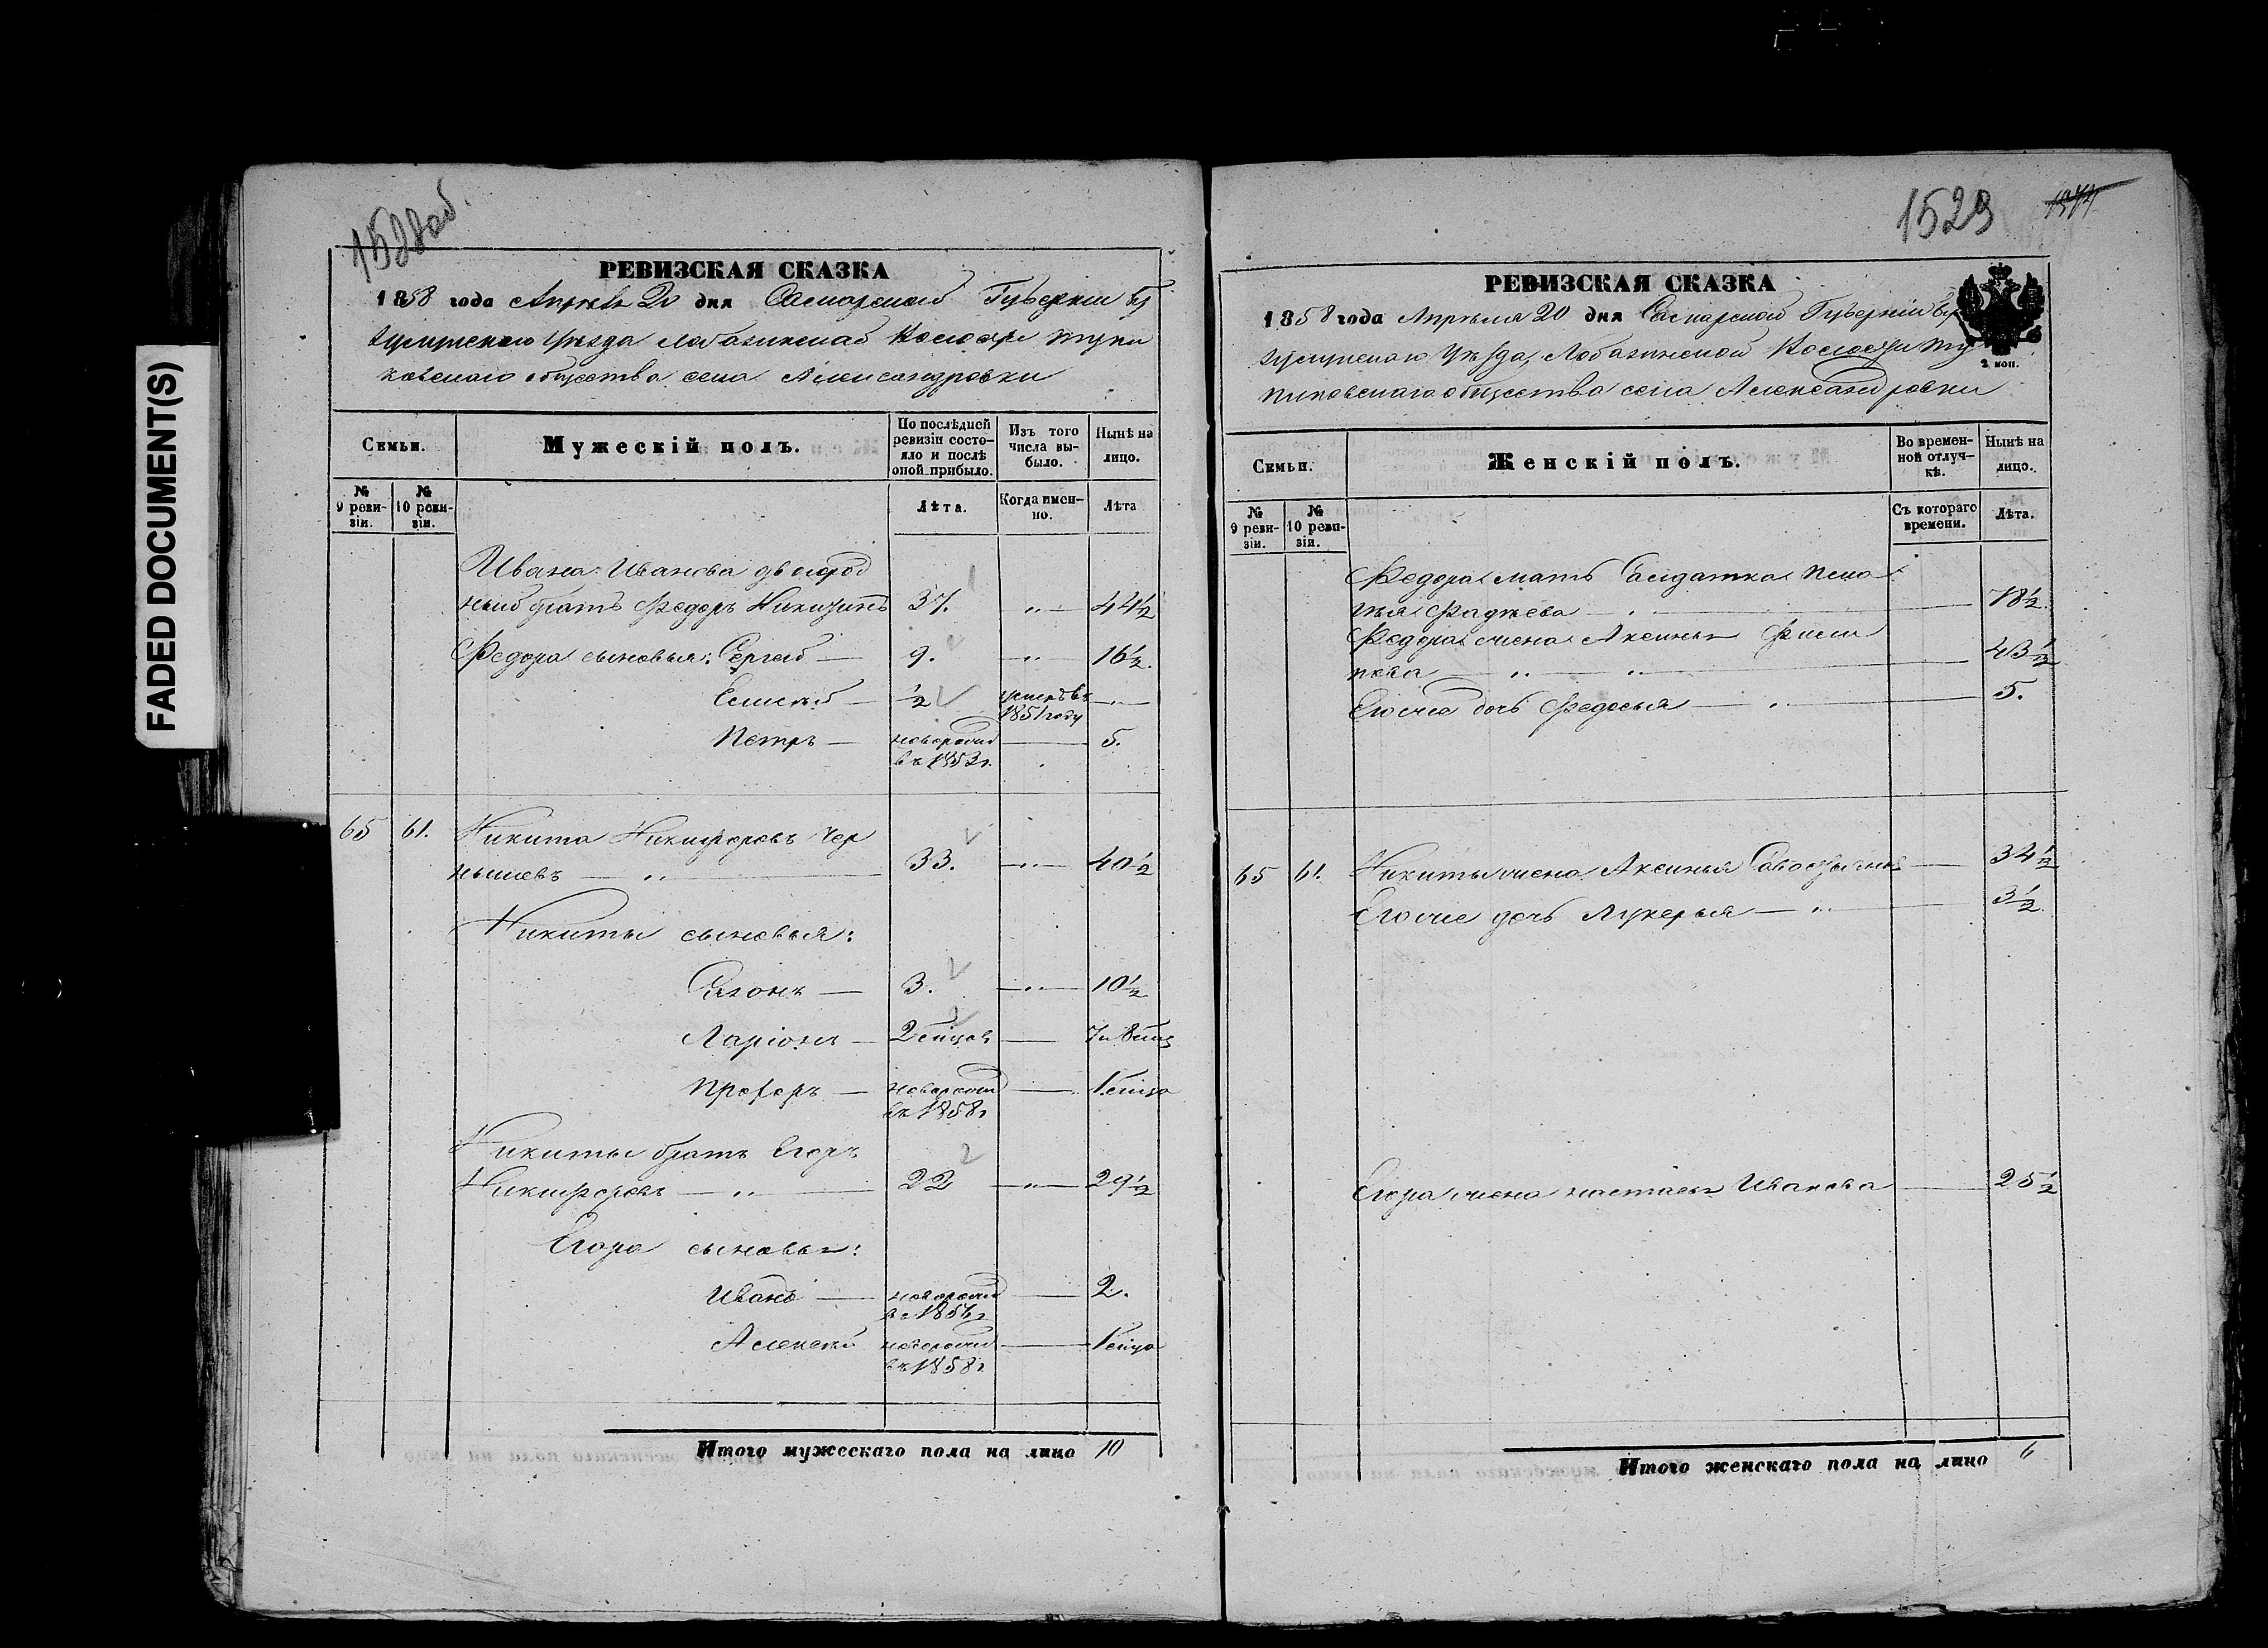 FADED DOCUMENT(S)
1528об.
РЕВИЗСКАЯ СКАЗКА
1858 года Апреля 20 дня Самарской Губернии Бу
зулукскаго Уѣзда Лобазинской Волости
ковскаго общества села Александровки
Семьи.
Мужескій полъ.
По послѣдней ревизіи состояло и послѣ оной прибыло.
Изъ того числа выбыло.
Нынѣ на лицо.
№ 9 ревизіи.
№ 10 ревизіи.
Лѣта.
Когда именно.
Лѣта
Ивана Иванова двоюрод
ный братъ Федоръ 37. 44½
Федора сыновья: Сергей 9. 16½.
Елисей ½ умеръ въ 1851 году
Петръ новорожд въ 1853г. 5.
65 61. Никита Никифоровъ Чер
нышевъ 33. 40½
Никиты сыновья:
3. 10½
Ларіонъ 2 7 и 8
новорожд въ 1858г 1
Никиты братъ Егоръ
Никифоровъ 22 29½
Егора сыновья:
Иванъ новорожд 2.
Алексей новорожд въ 1858г. 1
Итого мужескаго пола на лицо 10
1529
РЕВИЗСКАЯ СКАЗКА
1858 года Апреля 20 дня Самарской Губерніи Бу
зулукскаго Уѣзда, Лобазинской Волости
ковскаго общества села Александровки
2 коп.
Семьи.
Женскій полъ.
Во временной отлучкѣ.
Нынѣ на лицо.
№ 9 ревизіи.
№ 10 ревизія.
Съ котораго времени.
Лѣта.
Федора мать Салдатка Пела
гѣя Фадѣева 78½.
Федора жена Аксинья Фили
пова 43½
Его же дочь Федосья 5.
65 61. Никиты жена Аксинья 34½
Его же дочь Лукерья 3½.
Егора жена Настасья Иванова 25½
Итого женскаго пола на лицо 6